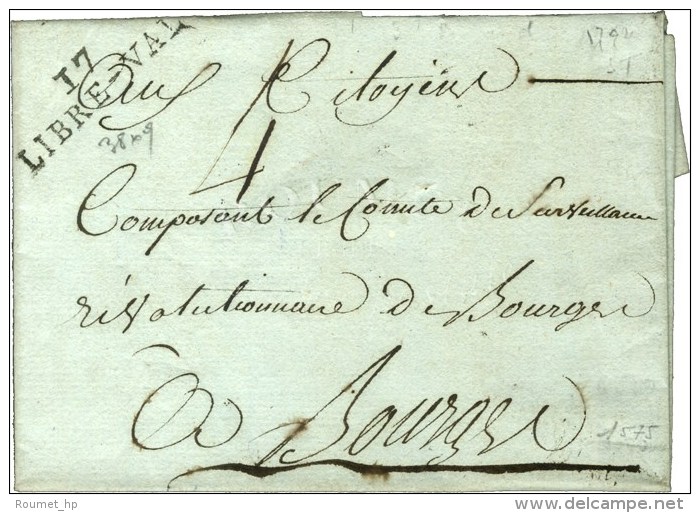 17
LIBRE-VAL
Aux Citoyens
4
38x9
Composant le Comité de Surveillance
révolutionnaire de Bourges
A Bourges
1575
Roumet_hp
delcampe.net